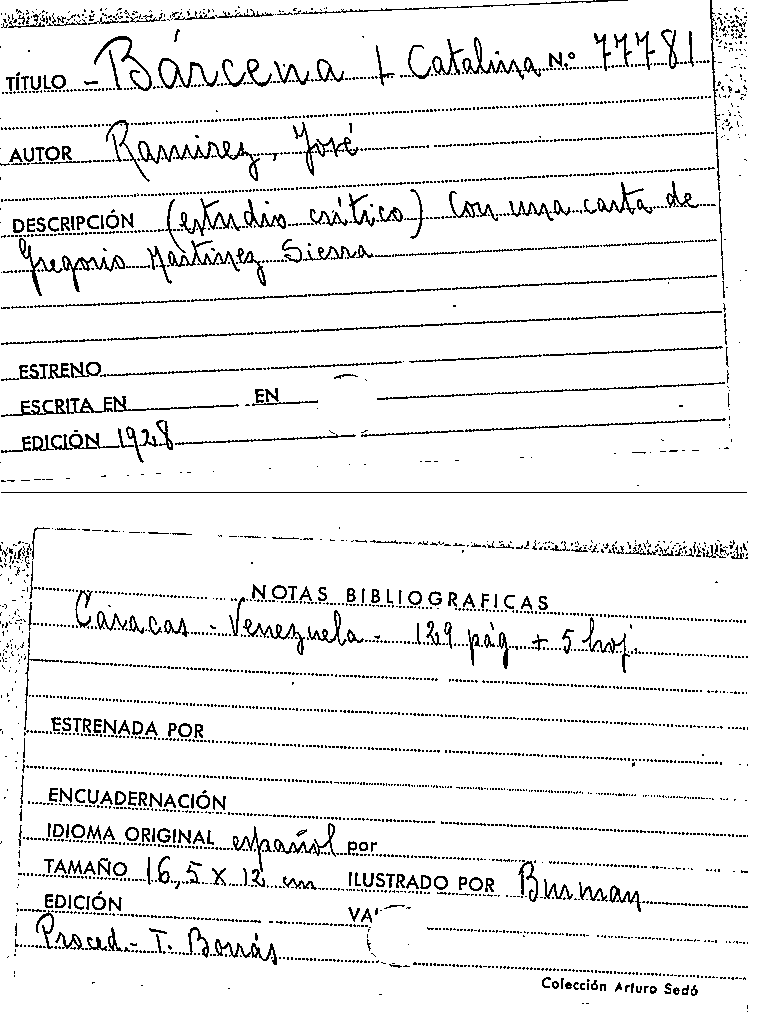 TÍTULO - Bárcena / Catalina N.º 77781
AUTOR Ramirez, José
DESCRIPCIÓN (estudio crítico) Con una carta de
Gregorio Martinez Sierra
ESTRENO
ESCRITA EN EN
EDICIÓN 1928
NOTAS BIBLIOGRAFICAS
Caracas - Venezuela - 129 pág + 5 hoj.
ESTRENADA POR
ENCUADERNACIÓN
IDIOMA ORIGINAL español por
TAMAÑO 16,5 X 12 cm ILUSTRADO POR Burman
EDICIÓN VA
Proced.- T. Borrás
Colección Arturo Sedó